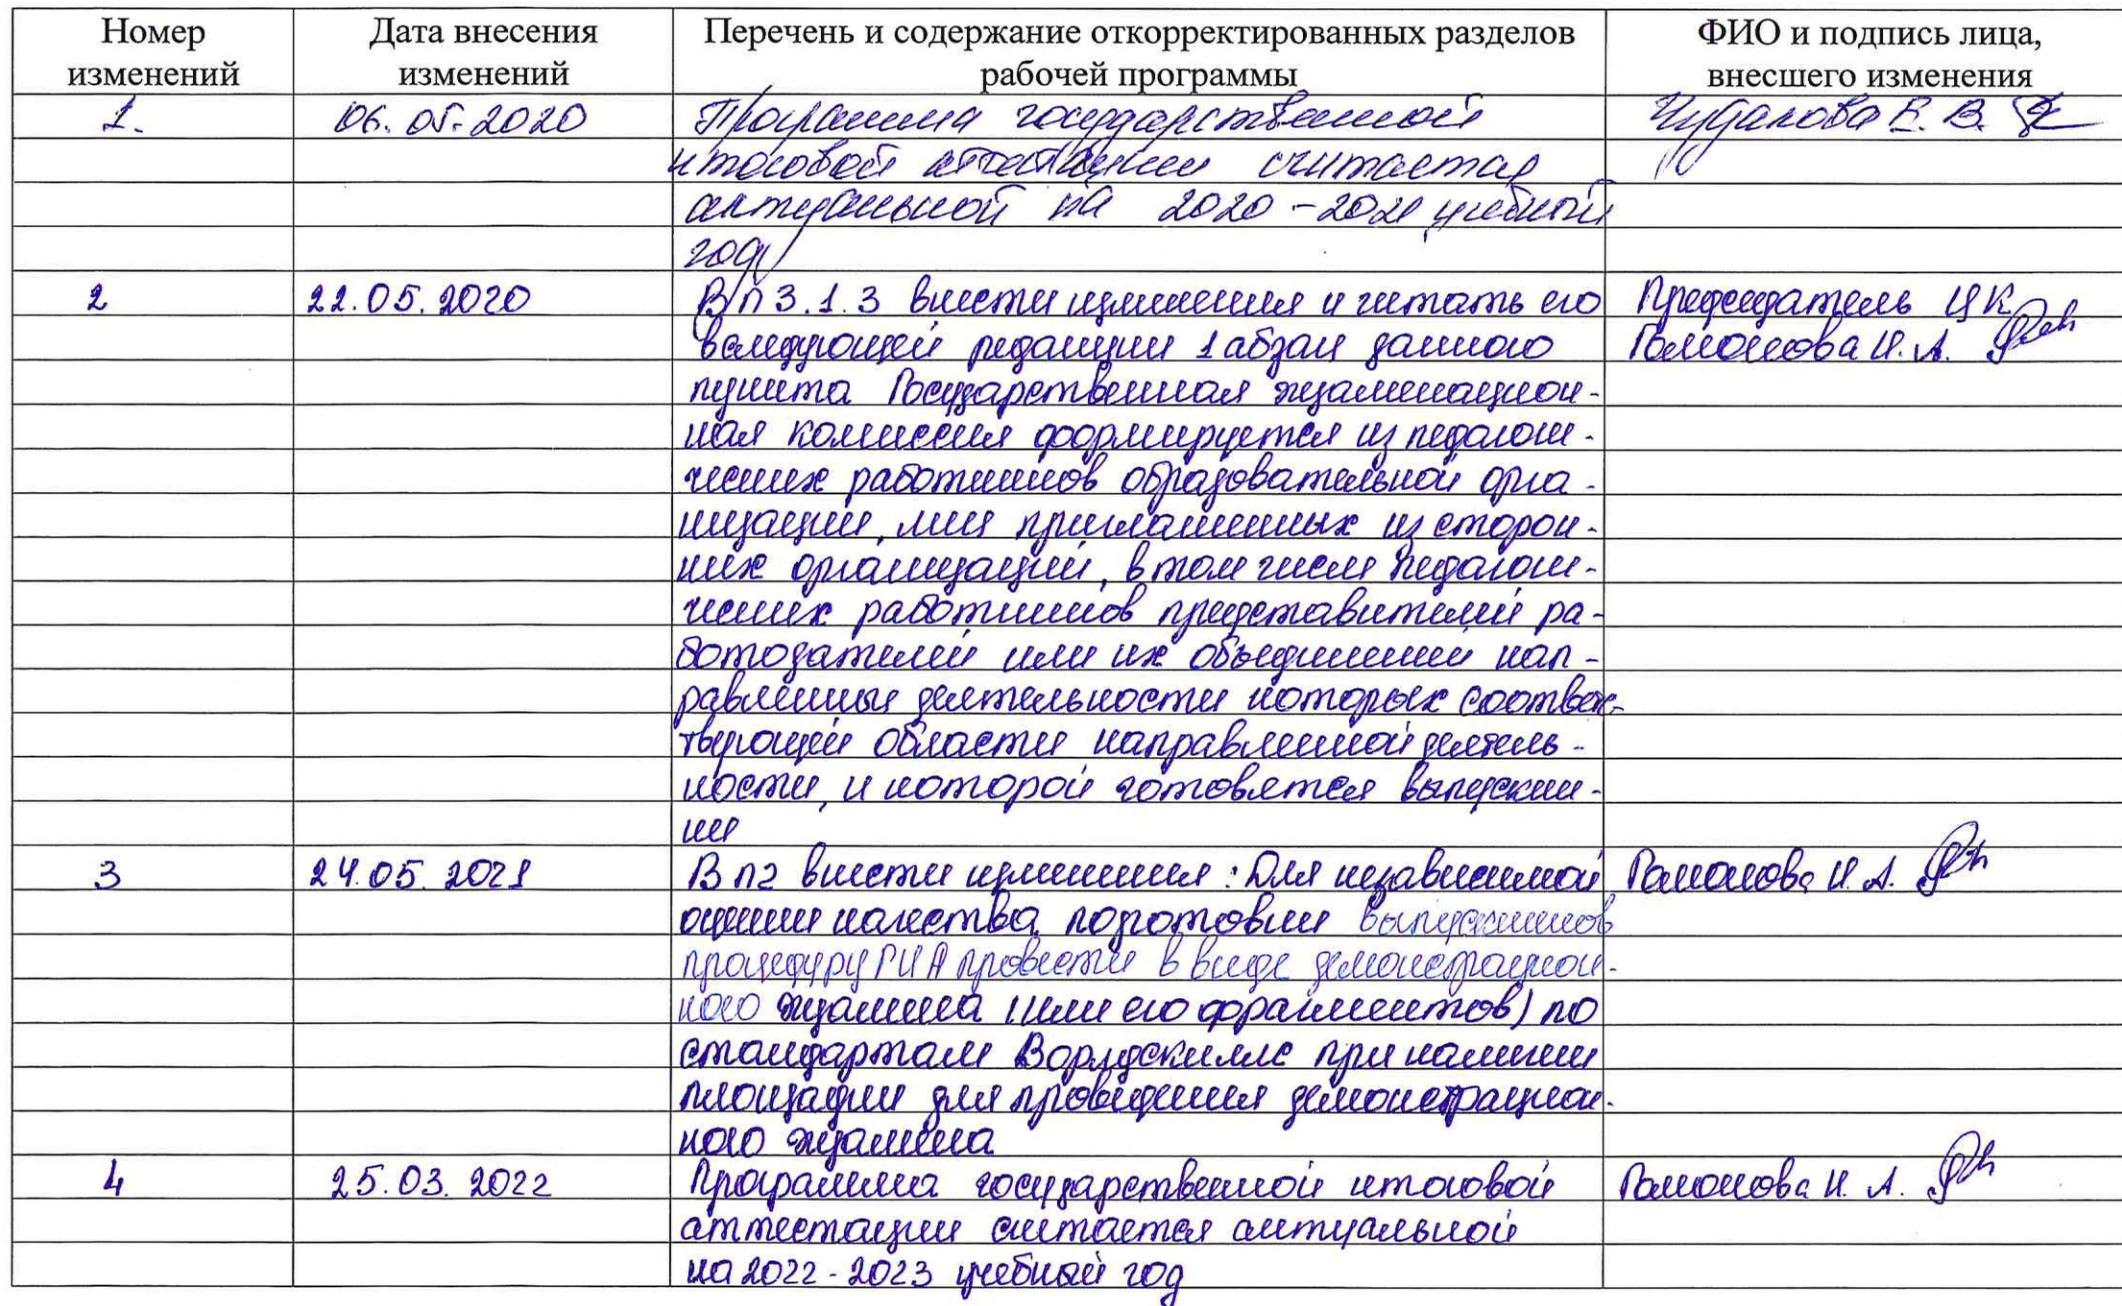 Номер изменений
Дата внесения изменений
Перечень и содержание откорректированных разделов рабочей программы
ФИО и подпись лица, внесшего изменения
1. 06.05.2020 Программа государственной Чудакова Е. В.
итоговой аттестации считается
актуальной на 2020-2021 учебный
год
2 22.05.2020 В п 3.1.3 внести изменения и читать его Председатель ЦК
в следующей редакции 1 абзац данного И. А.
пункта Государственная экзаменацион-
ная комиссия формируется из педагоги-
ческих работников образовательной орга-
низации, лиц приглашенных из сторон-
них организаций, в том числе педагоги-
ческих работников представителей ра-
ботодателей или их объединений нап-
равление деятельности которых соответс-
твующей области направленной деятель-
ности, к которой готовятся выпускни-
ки
3 24.05.2021 В п2 внести изменения: Для независимой И. А.
оценки качества подготовки выпускников
процедуру ГИА провести в виде демонстрацион-
ного экзамена (или его фрагментов) по
стандартам Ворлдскиллс при наличии
площадки для проведения демонстрацион-
ного экзамена
4 25.03.2022 Программа государственной итоговой И. А.
аттестации считается актуальной
на 2022-2023 учебный год